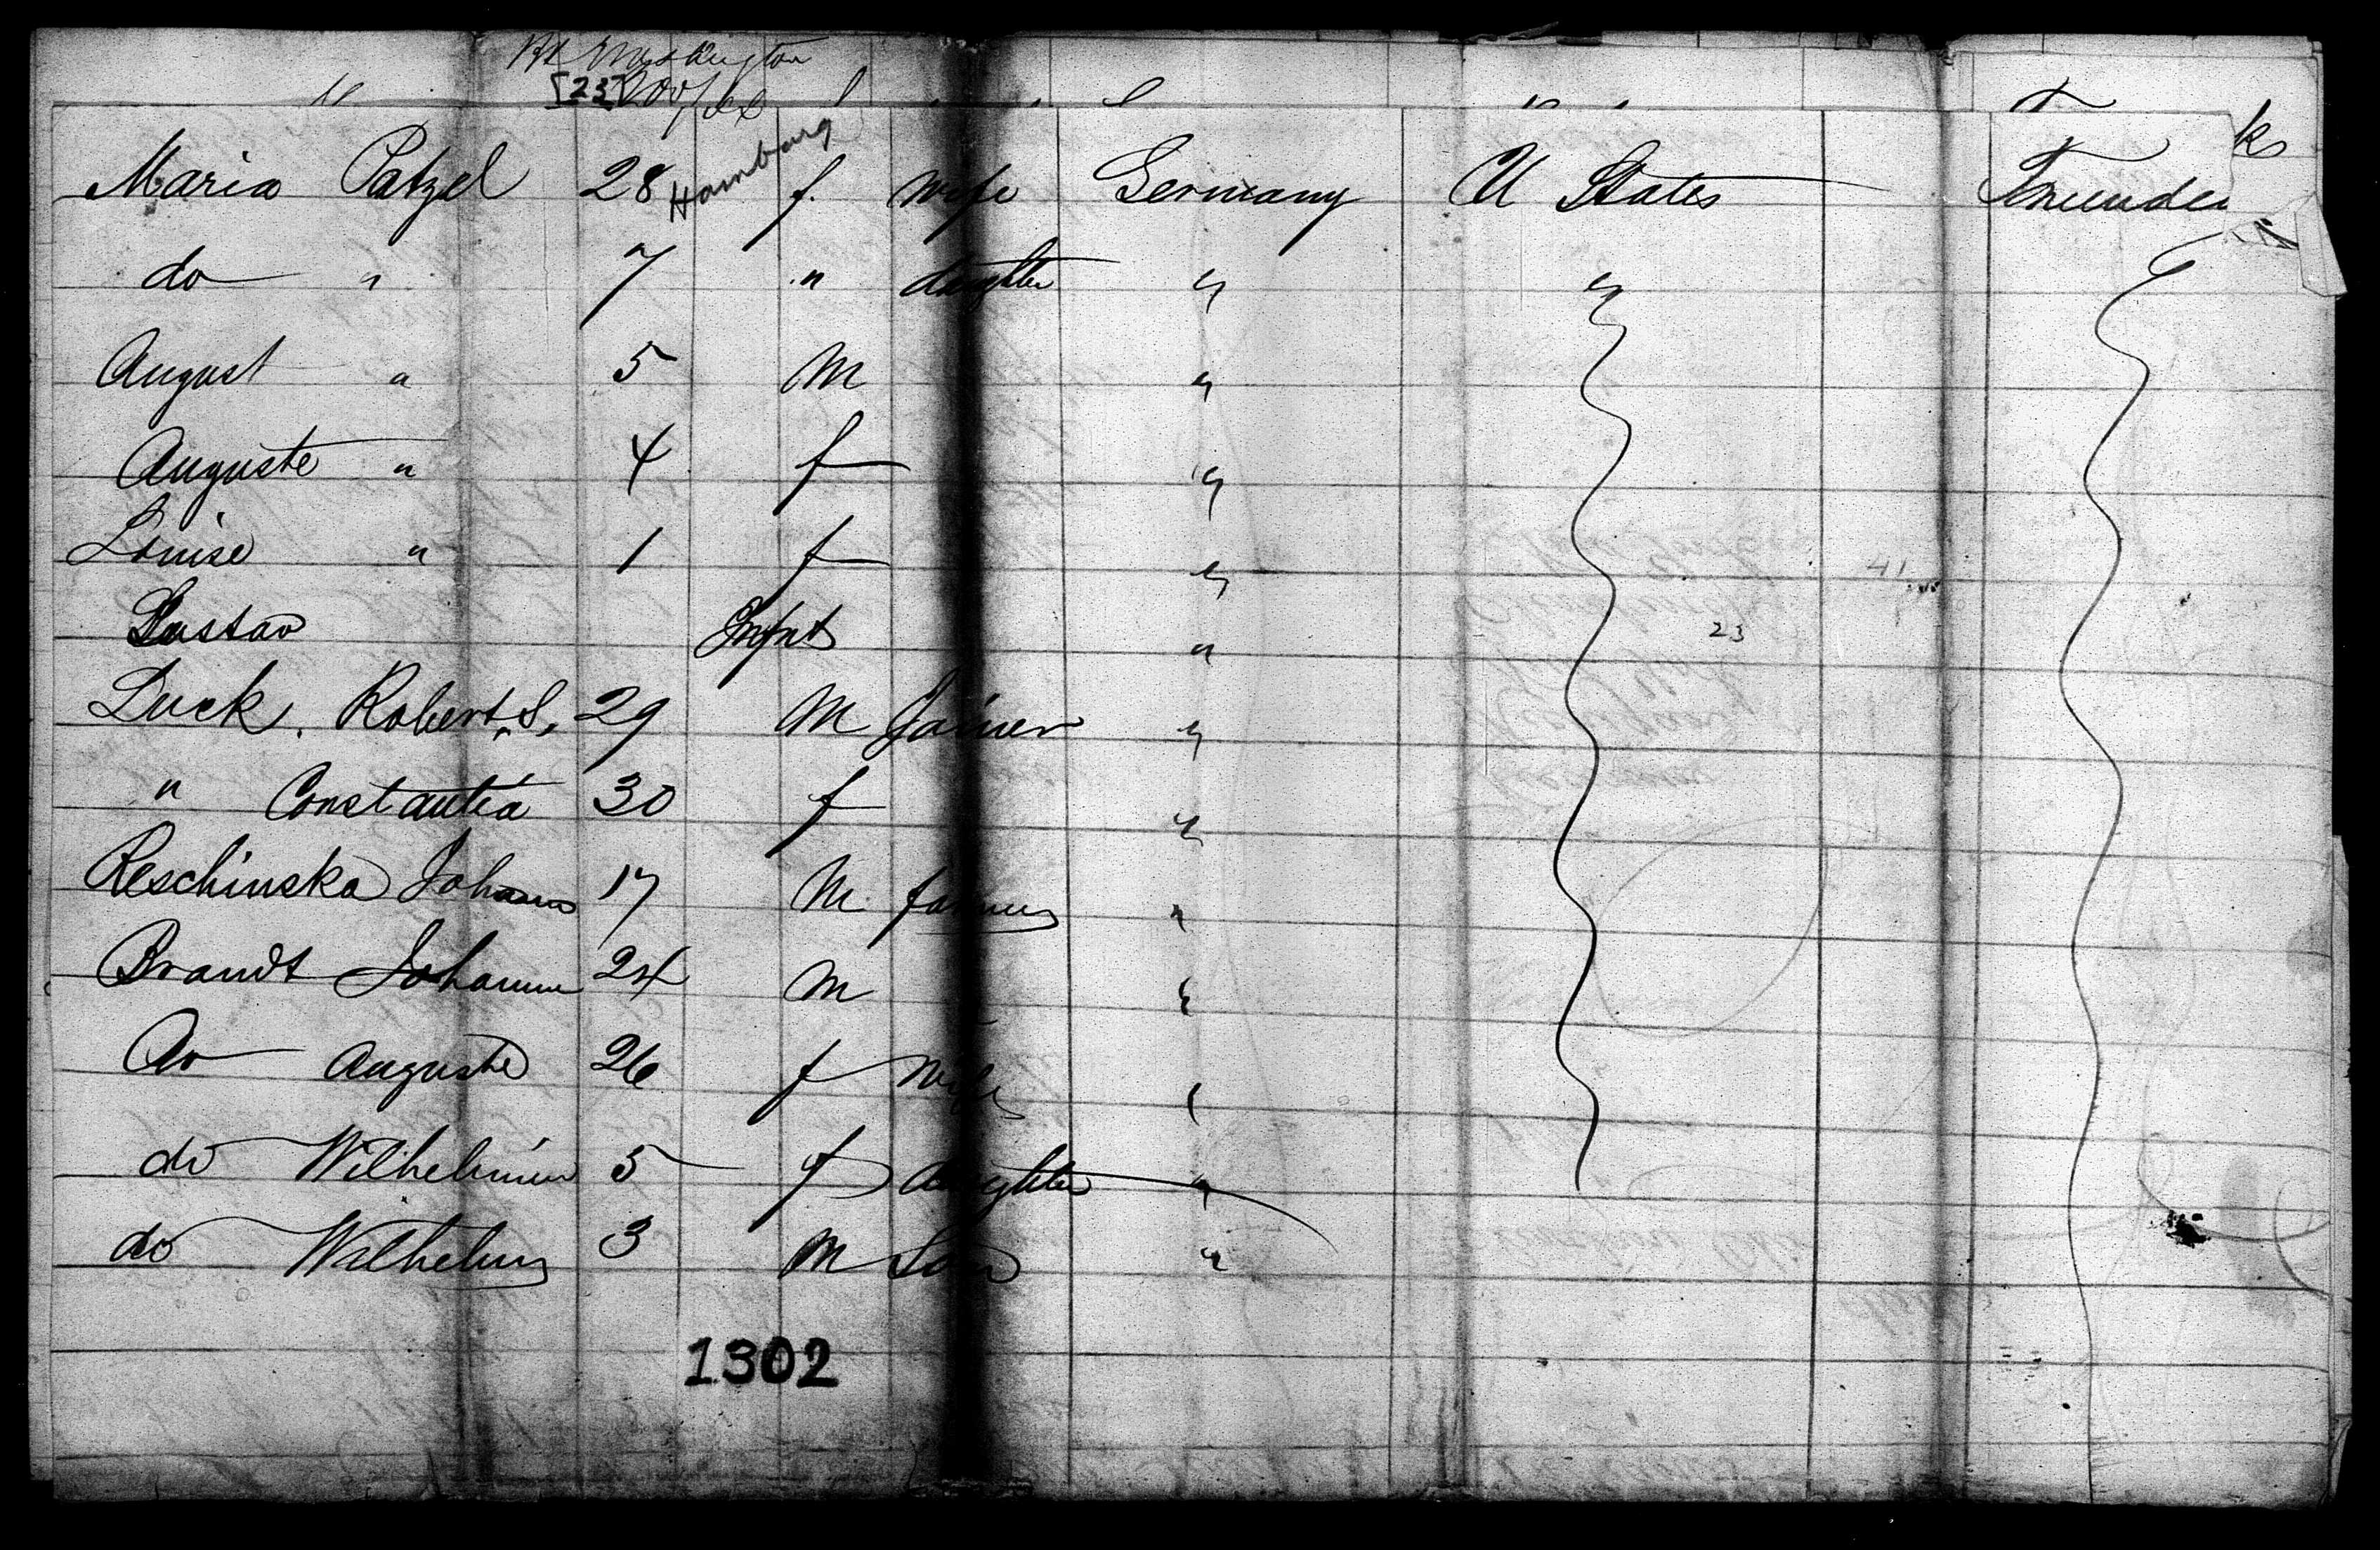 Washington
[23]
Hamburg
Maria Patzel 28 f. wife Germany U States
do " 7 " daughter " "
August " 5 M "
Auguste " 4 f "
Louise " 1 f "
Gustav Infnt "
23
Luck, Robert S, 29 M "
" Constantia 30 f "
Reschinska Johann 17 M farmer "
Brandt Johann 24 M "
do Auguste 26 f wife "
do Wilhelmine 5 f daughter "
do Wilhelm 3 M Son "
1302